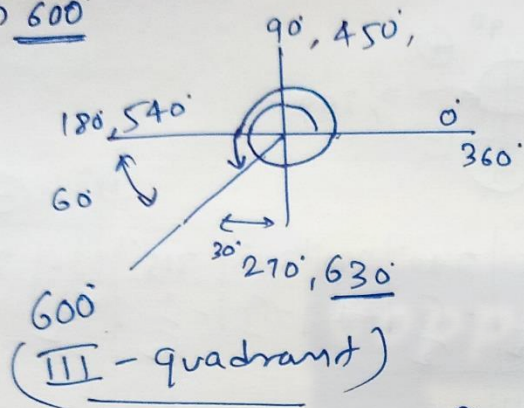 600
90°, 450°,
180°, 540°
0°
360°
60°
30°
270°, 630°
600°
(III - quadrant)